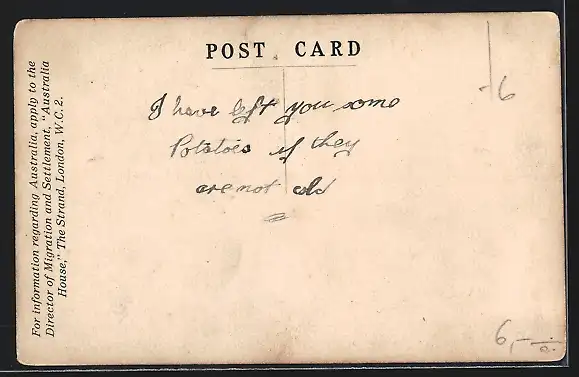 POST CARD
I have left you some
Potatoes if they
are not old
-6
6,-
For information regarding Australia, apply to the
Director of Migration and Settlement, "Australia
House," The Strand, London, W.C.2.